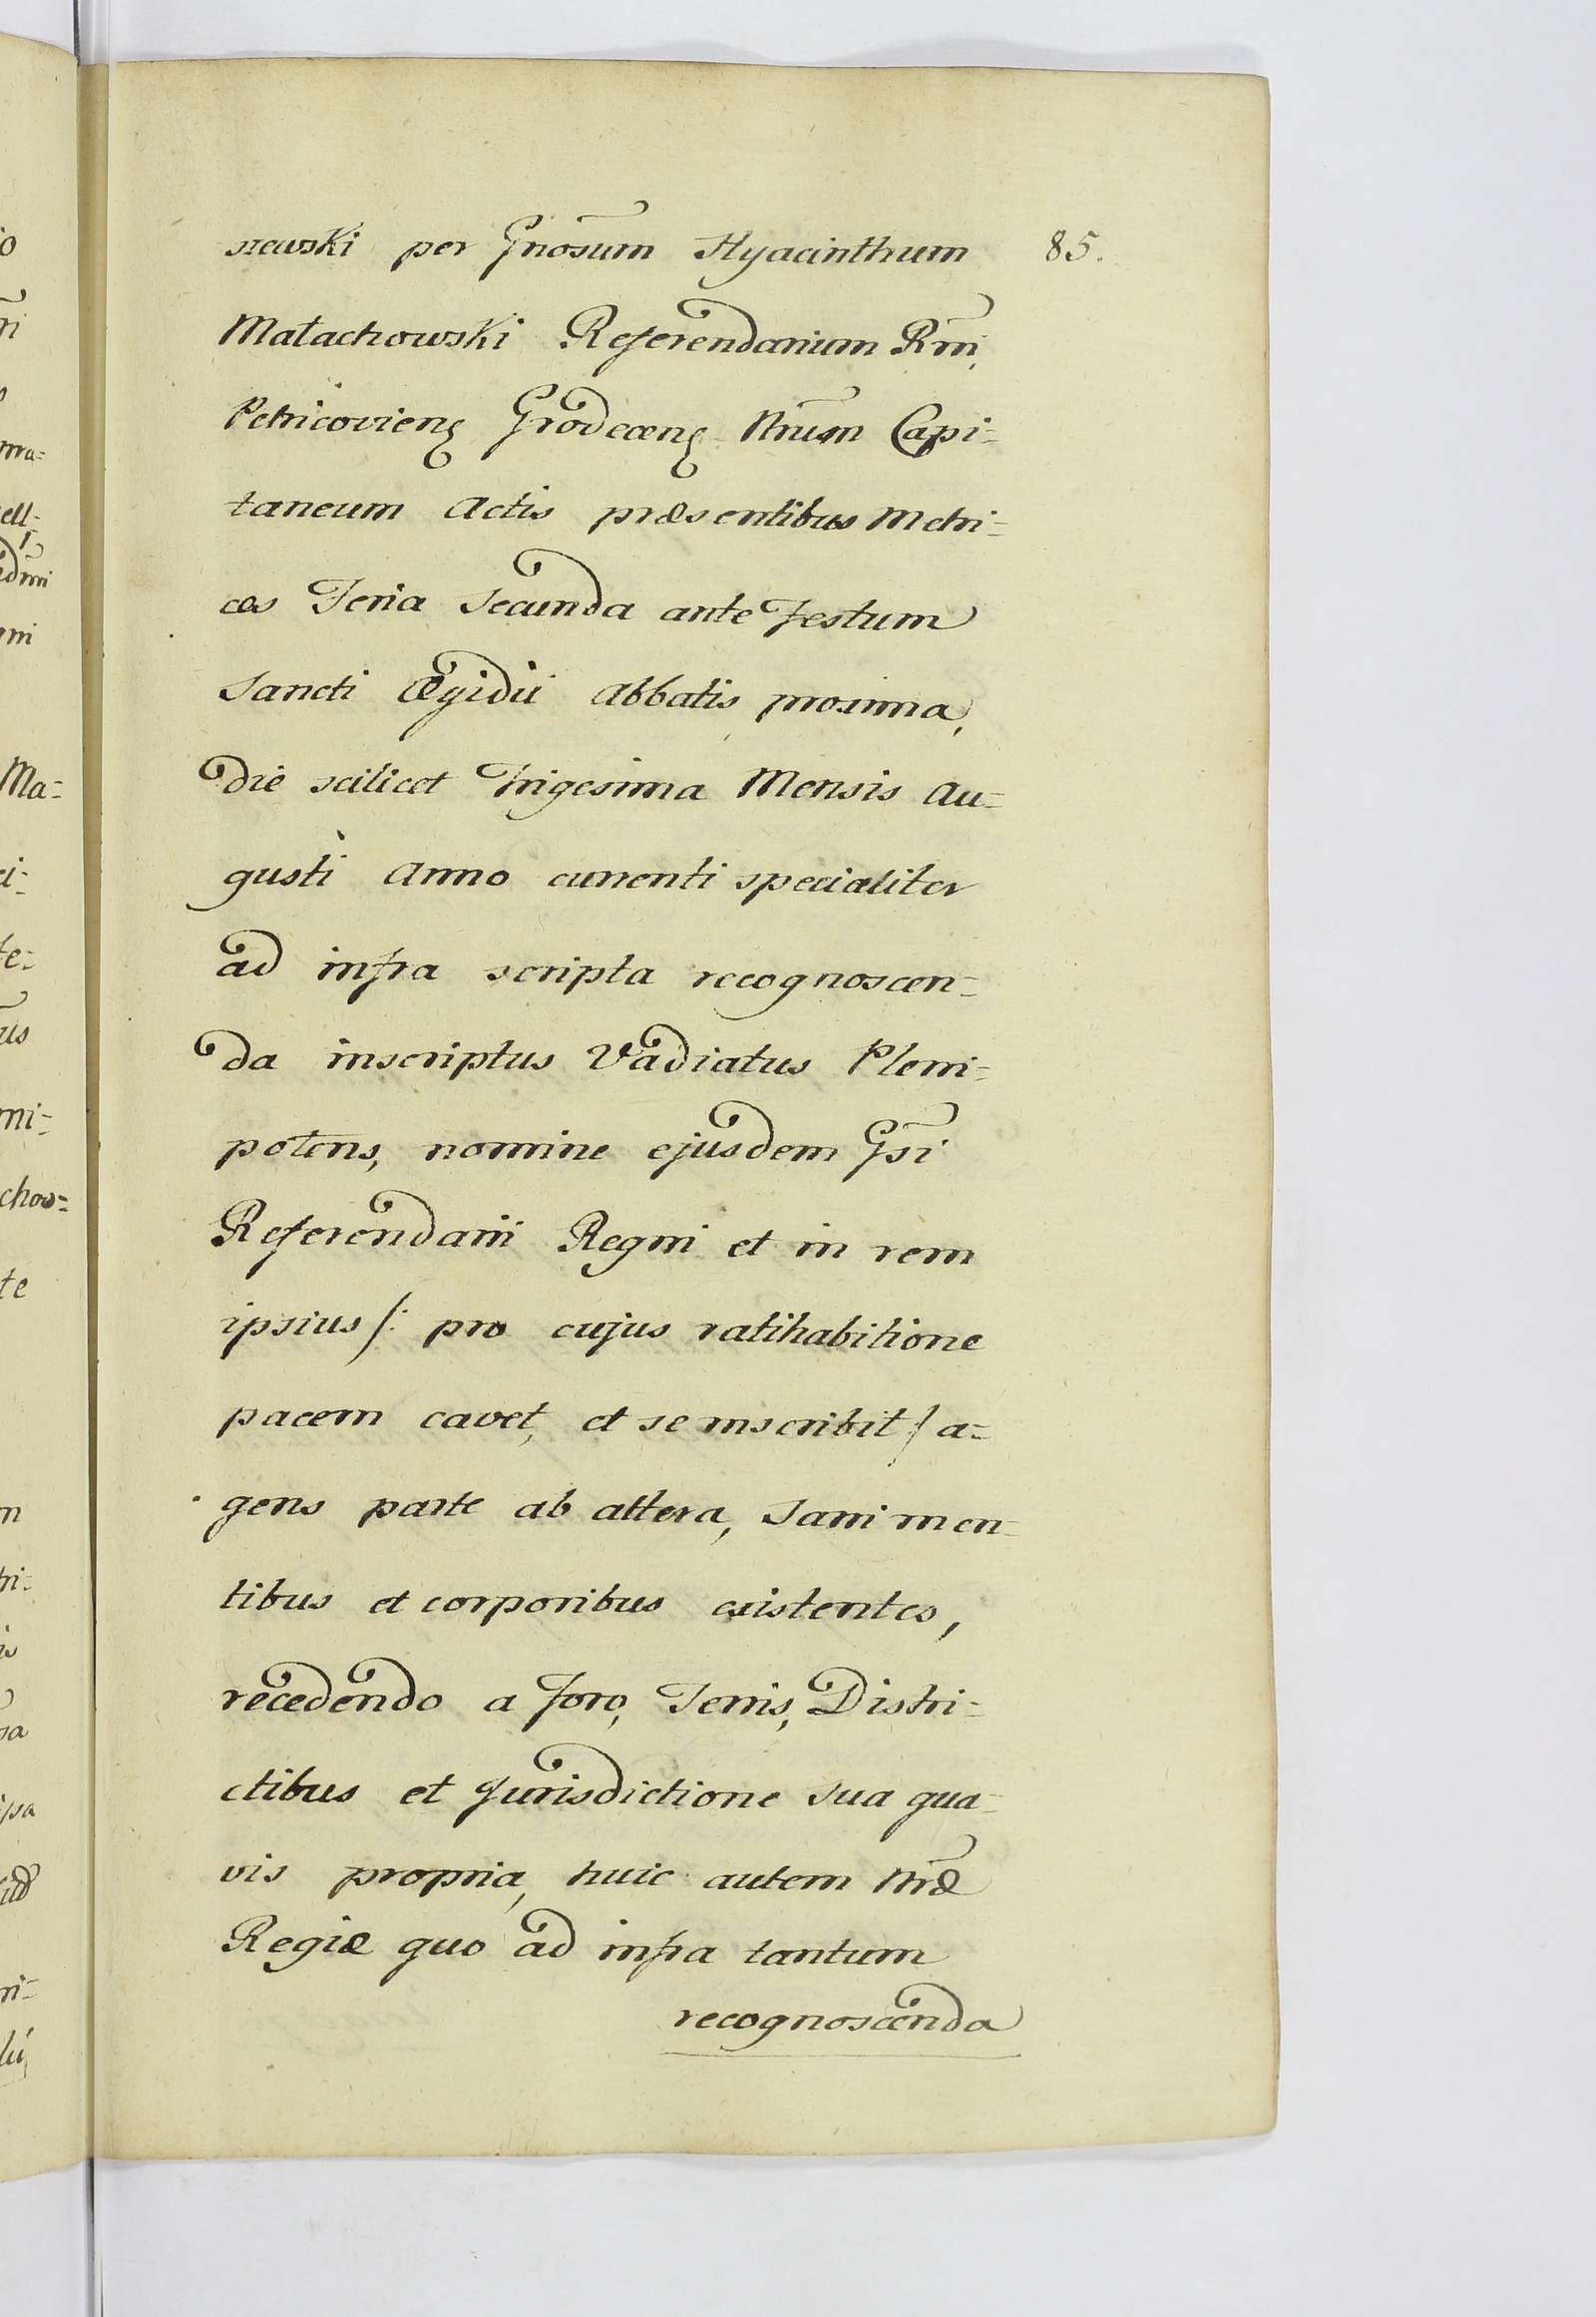 szewski per Gnosum Hyacinthum 85.
Małachowski Referendarium Rni,
Petricovien̄ Grodecen̄ Nrum Capi=
taneum Actis præsentibus Metri=
ces Feria Secunda ante Festum
Sancti Ægidii Abbatis proxima,
die scilicet Trigesima Mensis Au=
gusti Anno currenti specialiter
ad infra scripta recognoscen=
da inscriptus Vadiatus Pleni=
potens, nomine ejusdem Gsi
Referendarii Regni et in rem
ipsius /: pro cujus ratihabitione
pacem cavet, et se inscribit :/ a=
gens parte ab altera, Sani men=
tibus et corporibus existentes,
recedendo a Foro, Terris, Distri=
ctibus et Jurisdictione sua qua=
vis propria, huic autem Nræ
Regiæ quo ad infra tantum
recognoscenda